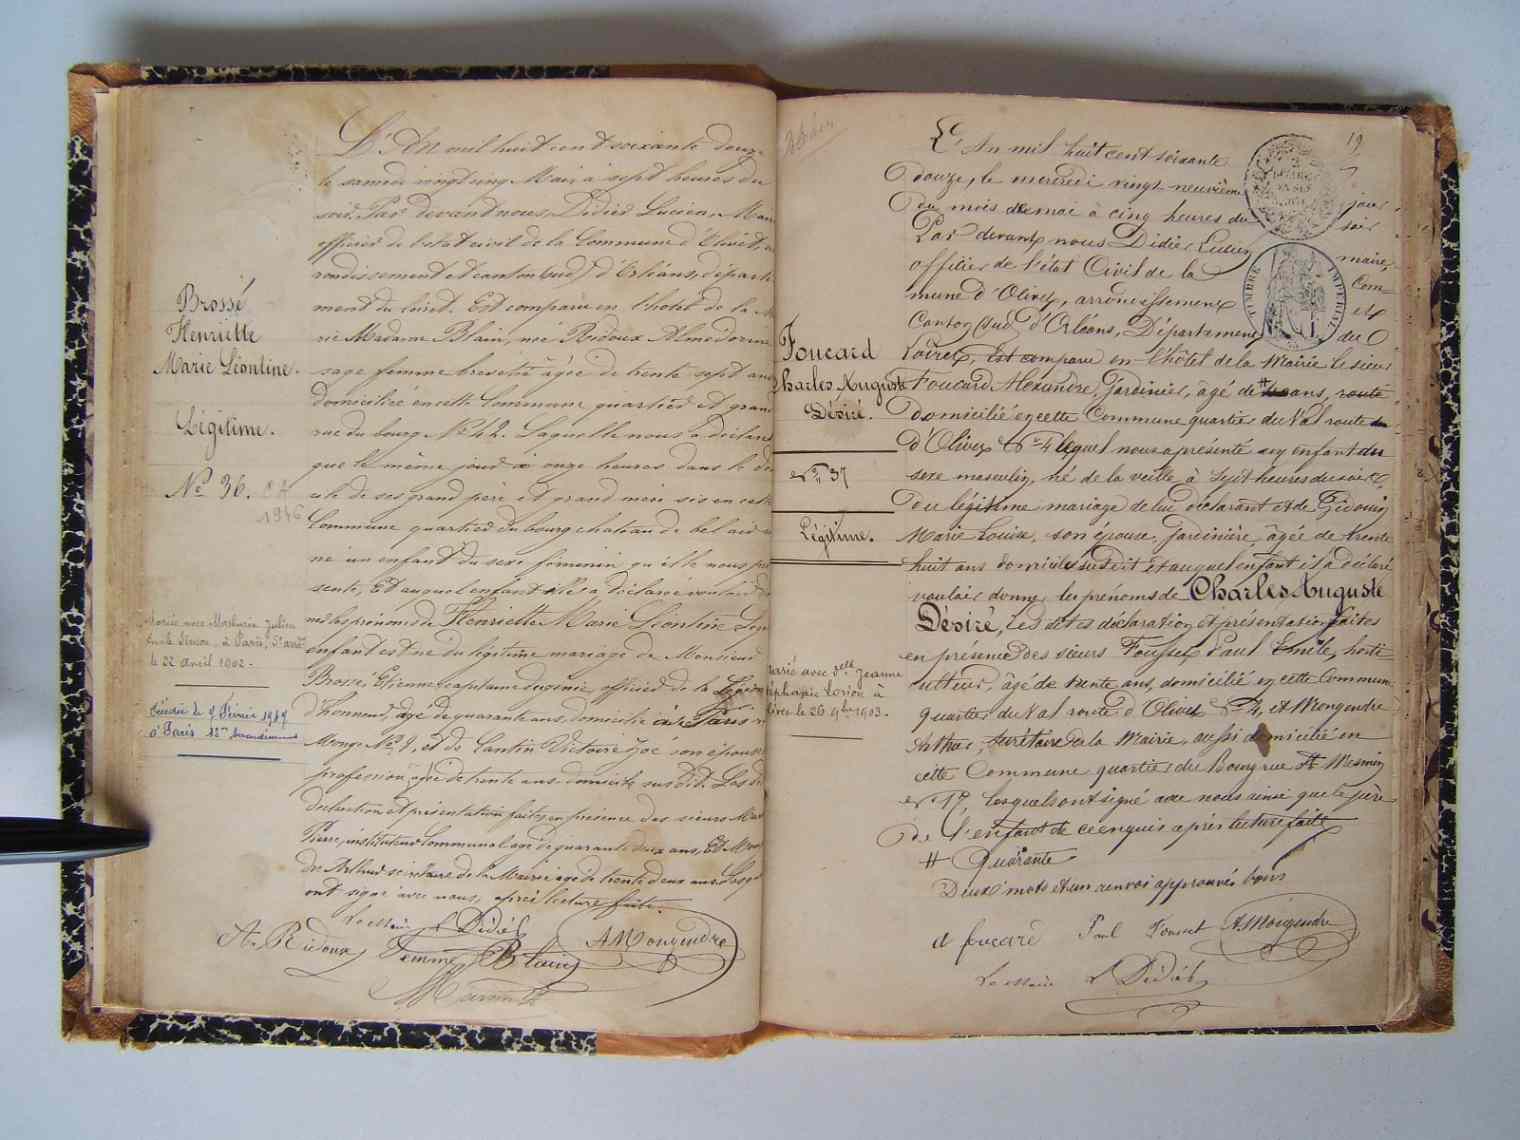 Brossé
Henriette
Marie Léontine.
Légitime.
No 36.
1946
Mariée avec Mathurin Julien
à Paris, 5e arrdt
le 22 avril 1902.
Décédée le 9 Février 1949
à Paris 12me
L'An mil huit cent soixante douze
le samedi vingt cinq Mai, à sept heures du
soir. Par devant nous, Didier Lucien, Maire
officier de l'état civil de la Commune d'Olivet, ar
rondissement et canton (sud) d'Orléans, départe
ment du Loiret. Est comparue en l'hôtel de la
rie Madame Blain, née Ridoux
sage femme brevetée âgée de trente sept ans
domiciliée en cette Commune quartier et grand
rue du bourg No 42. Laquelle nous a déclaré
que le même jour à onze heures dans le do
cile de ses grand père et grand mère sis en cette
Commune quartier du bourg chateau de bel air
né un enfant du sexe féminin qu'elle nous pré
sente, Et auquel enfant elle a déclaré vouloir
les prénoms de Henriette Marie Léontine
enfant est né du légitime mariage de Monsieur
Brossé, Etienne, capitaine du génie, officier de la Légion
d'honneur, âgé de quarante ans, domicilié à Paris
Monge No 9, et de Cantin Victoire Zoé son épouse
profession âgée de trente ans domicile susdit. Les
déclaration et présentation faites en présence des sieurs
Pierre, instituteur Communal âgé de quarante deux ans, Et Mon
dre Arthur secrétaire de la Mairie âgé de trente deux ans. Lesq
ont signé avec nous, après lecture faite.
Le Maire L Didier
A. Ridoux Femme Blain AMongendre
19
L'An mil huit cent soixante
Douze, le mercredi vingt neuvième jour
du mois de mai à cinq heures du soir
Par devant nous Didier Lucien maire,
officier de l'état Civil de la Com=
mune d'Olivet, arrondissement et
Canton (sud) d'Orléans, Département du
Loiret, Est comparu en l'hôtel de la Mairie le sieur
Foucard Alexandre, Jardinier, âgé de # ans, route
Domicilié en cette Commune quartier du Val route
d'Olivet No 4 lequel nous a présenté un enfant du
sexe masculin, né de la veille à sept heures du soir
Du légitime mariage de lui déclarant et de Gidouin
Marie Louise, son épouse, Jardinière, âgée de trente
huit ans domicile susdit et auquel enfant il a déclaré
vouloir donner les prénoms de Charles Auguste
Désiré, Les dites déclaration et présentation faites
en présence Des sieurs Fousset Paul Emile, horti
culteur, âgé de trente ans, domicilié en cette Commune
quartier du Val route d'Olivet No 4, et Mongendre
Arthur, secrétaire de la Mairie, aussi domicilié en
cette Commune quartier du Bourg rue St Mesmin
No 17, lesquels ont signé avec nous ainsi que le père
de l'enfant de ce enquis après lecture faite
# Quarante
Deux mots et un renvoi approuvés bons
A foucard Paul Fousset AMongendre
Le Maire L Didier
Foucard
Charles Auguste
Désiré.
No 37
Légitime.
Marié avec Delle Jeanne
Stéphanie Lorion à
Olivet le 26 9bre 1903.
TIMBRE IMPERIAL